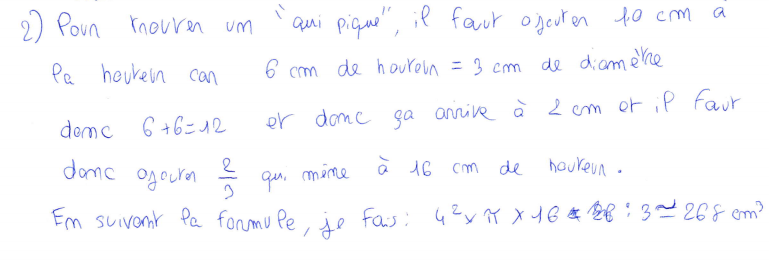 2) Pour trouver un "qui pique", il faut ajouter 10 cm à
la hauteur car 6 cm de hauteur = 3 cm de diamètre
donc 6+6=12 et donc ça arrive à 2 cm et il faut
donc ajouter 2/3 qui mène à 16 cm de hauteur.
En suivant la formule, je fais : 4² x π x 16 : 3 ≃ 268 cm³